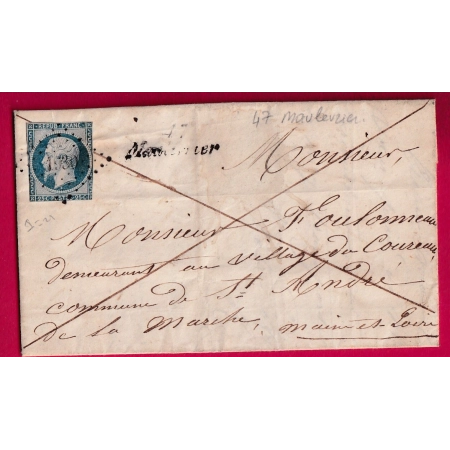 47 Maulevrier
REPUB. FRANC.
47
Maulevrier
Monsieur,
25 C. POSTES 25 C.
Monsieur Foulonneau
demeurant au village du Coureau
commune de St André
de la Marche, maine et Loire